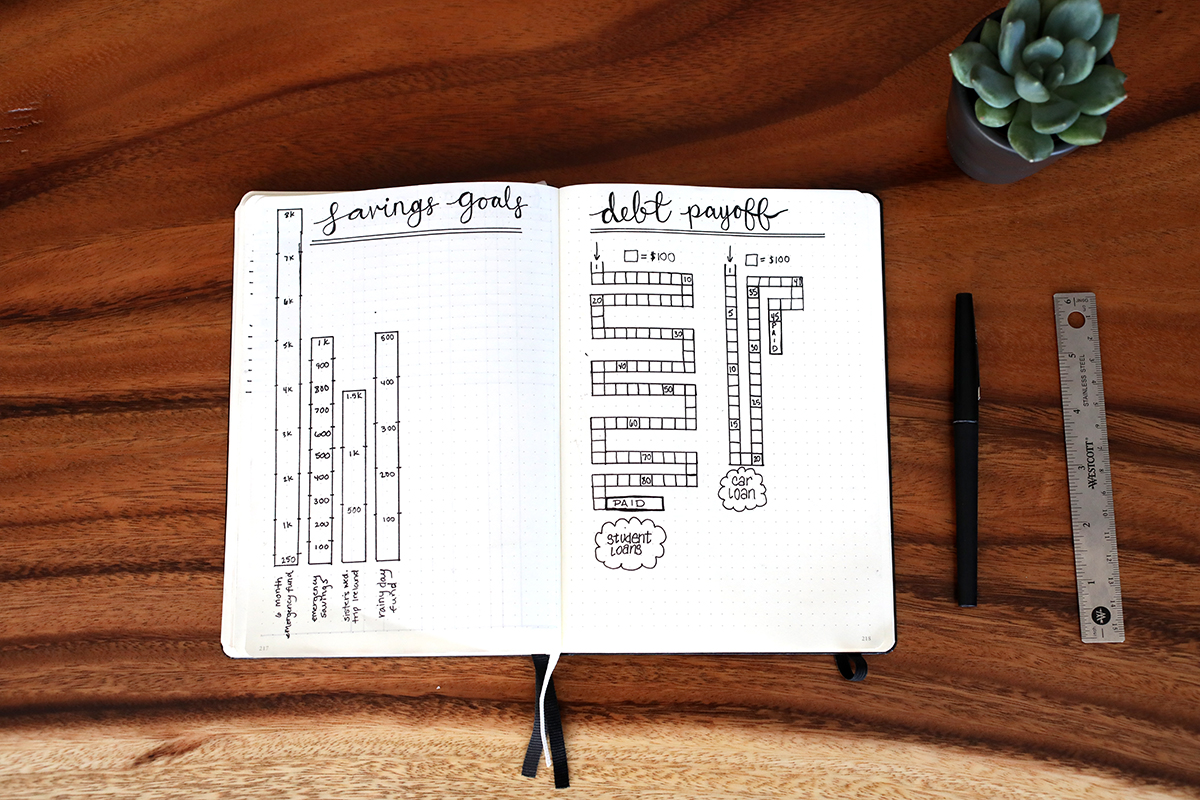 savings goals
8K
7K
6K
5K
4K
3K
2K
1K
250
6 month
emergency fund
1K
900
800
700
600
500
400
300
200
100
emergency
savings
1.5K
1K
500
sister's wed.
trip Ireland
500
400
300
200
100
rainy day
fund
217
debt payoff
= $100
1
10
20
30
40
50
60
70
80
PAID
student
loans
= $100
1
5
10
15
20
25
30
35
45
PAID
car
loan
218
STAINLESS STEEL
WESTCOTT
6
5
4
2
1
W